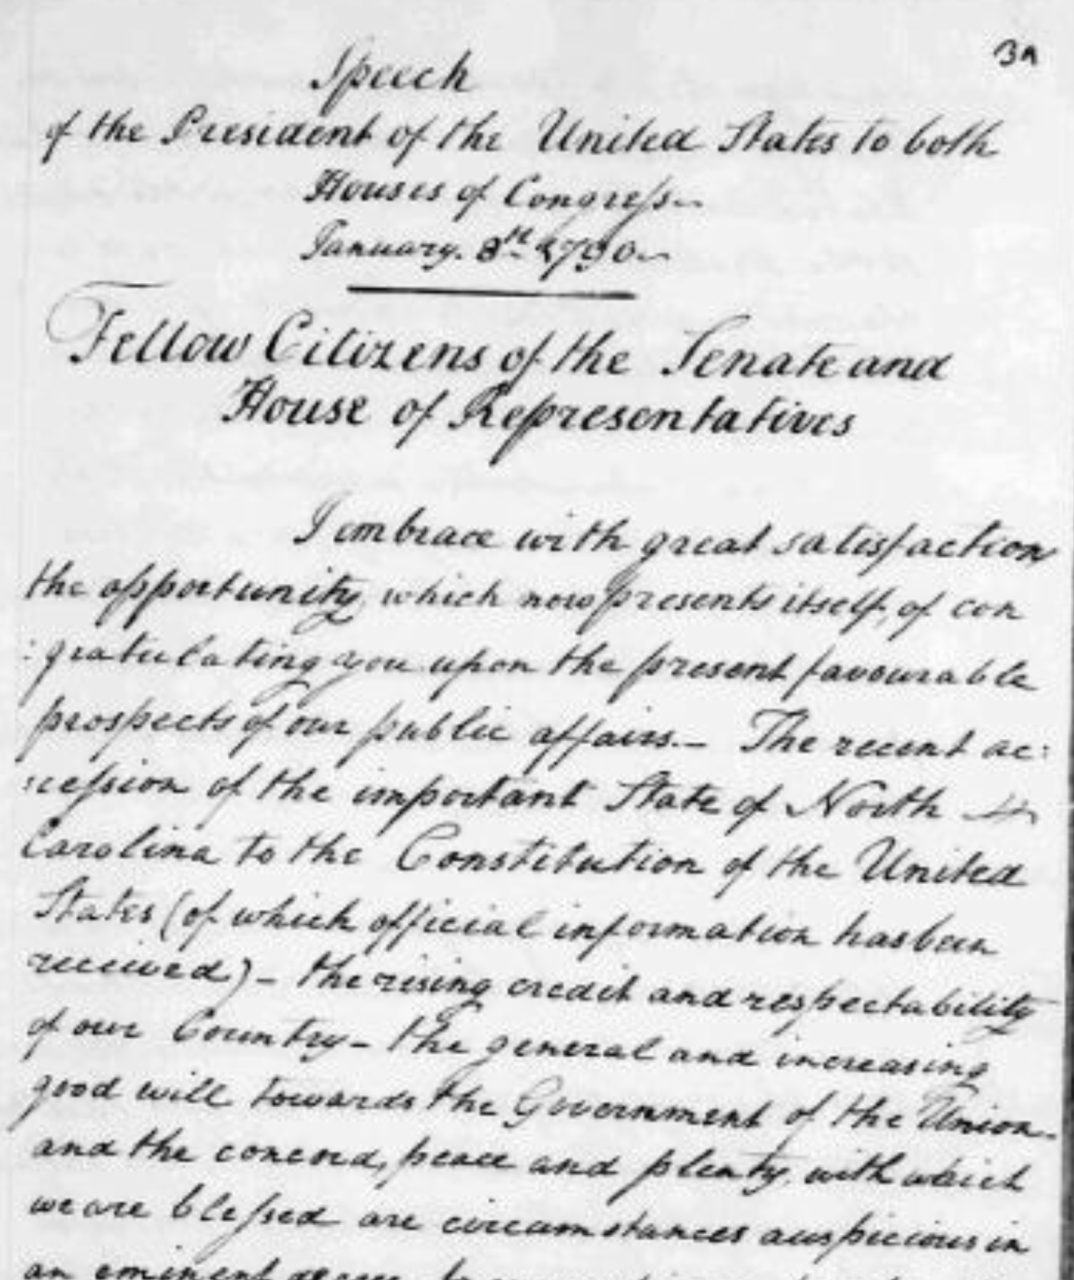 3A
Speech
of the President of the United States to both
Houses of Congress
January. 8th 1790
Fellow Citizens of the Senate and
House of Representatives
I embrace with great satisfaction
the opportunity, which now presents itself, of con
:gratulating you upon the present favourable
prospects of our public affairs.— The recent ac:
:cession of the important State of North
Carolina to the Constitution of the United
States (of which official information has been
received) – the rising credit and respectability
of our Country – the general and increasing
good will towards the Government of the Union–
and the concord, peace and plenty, with which
we are blessed are circumstances auspicious in
an eminent degree to